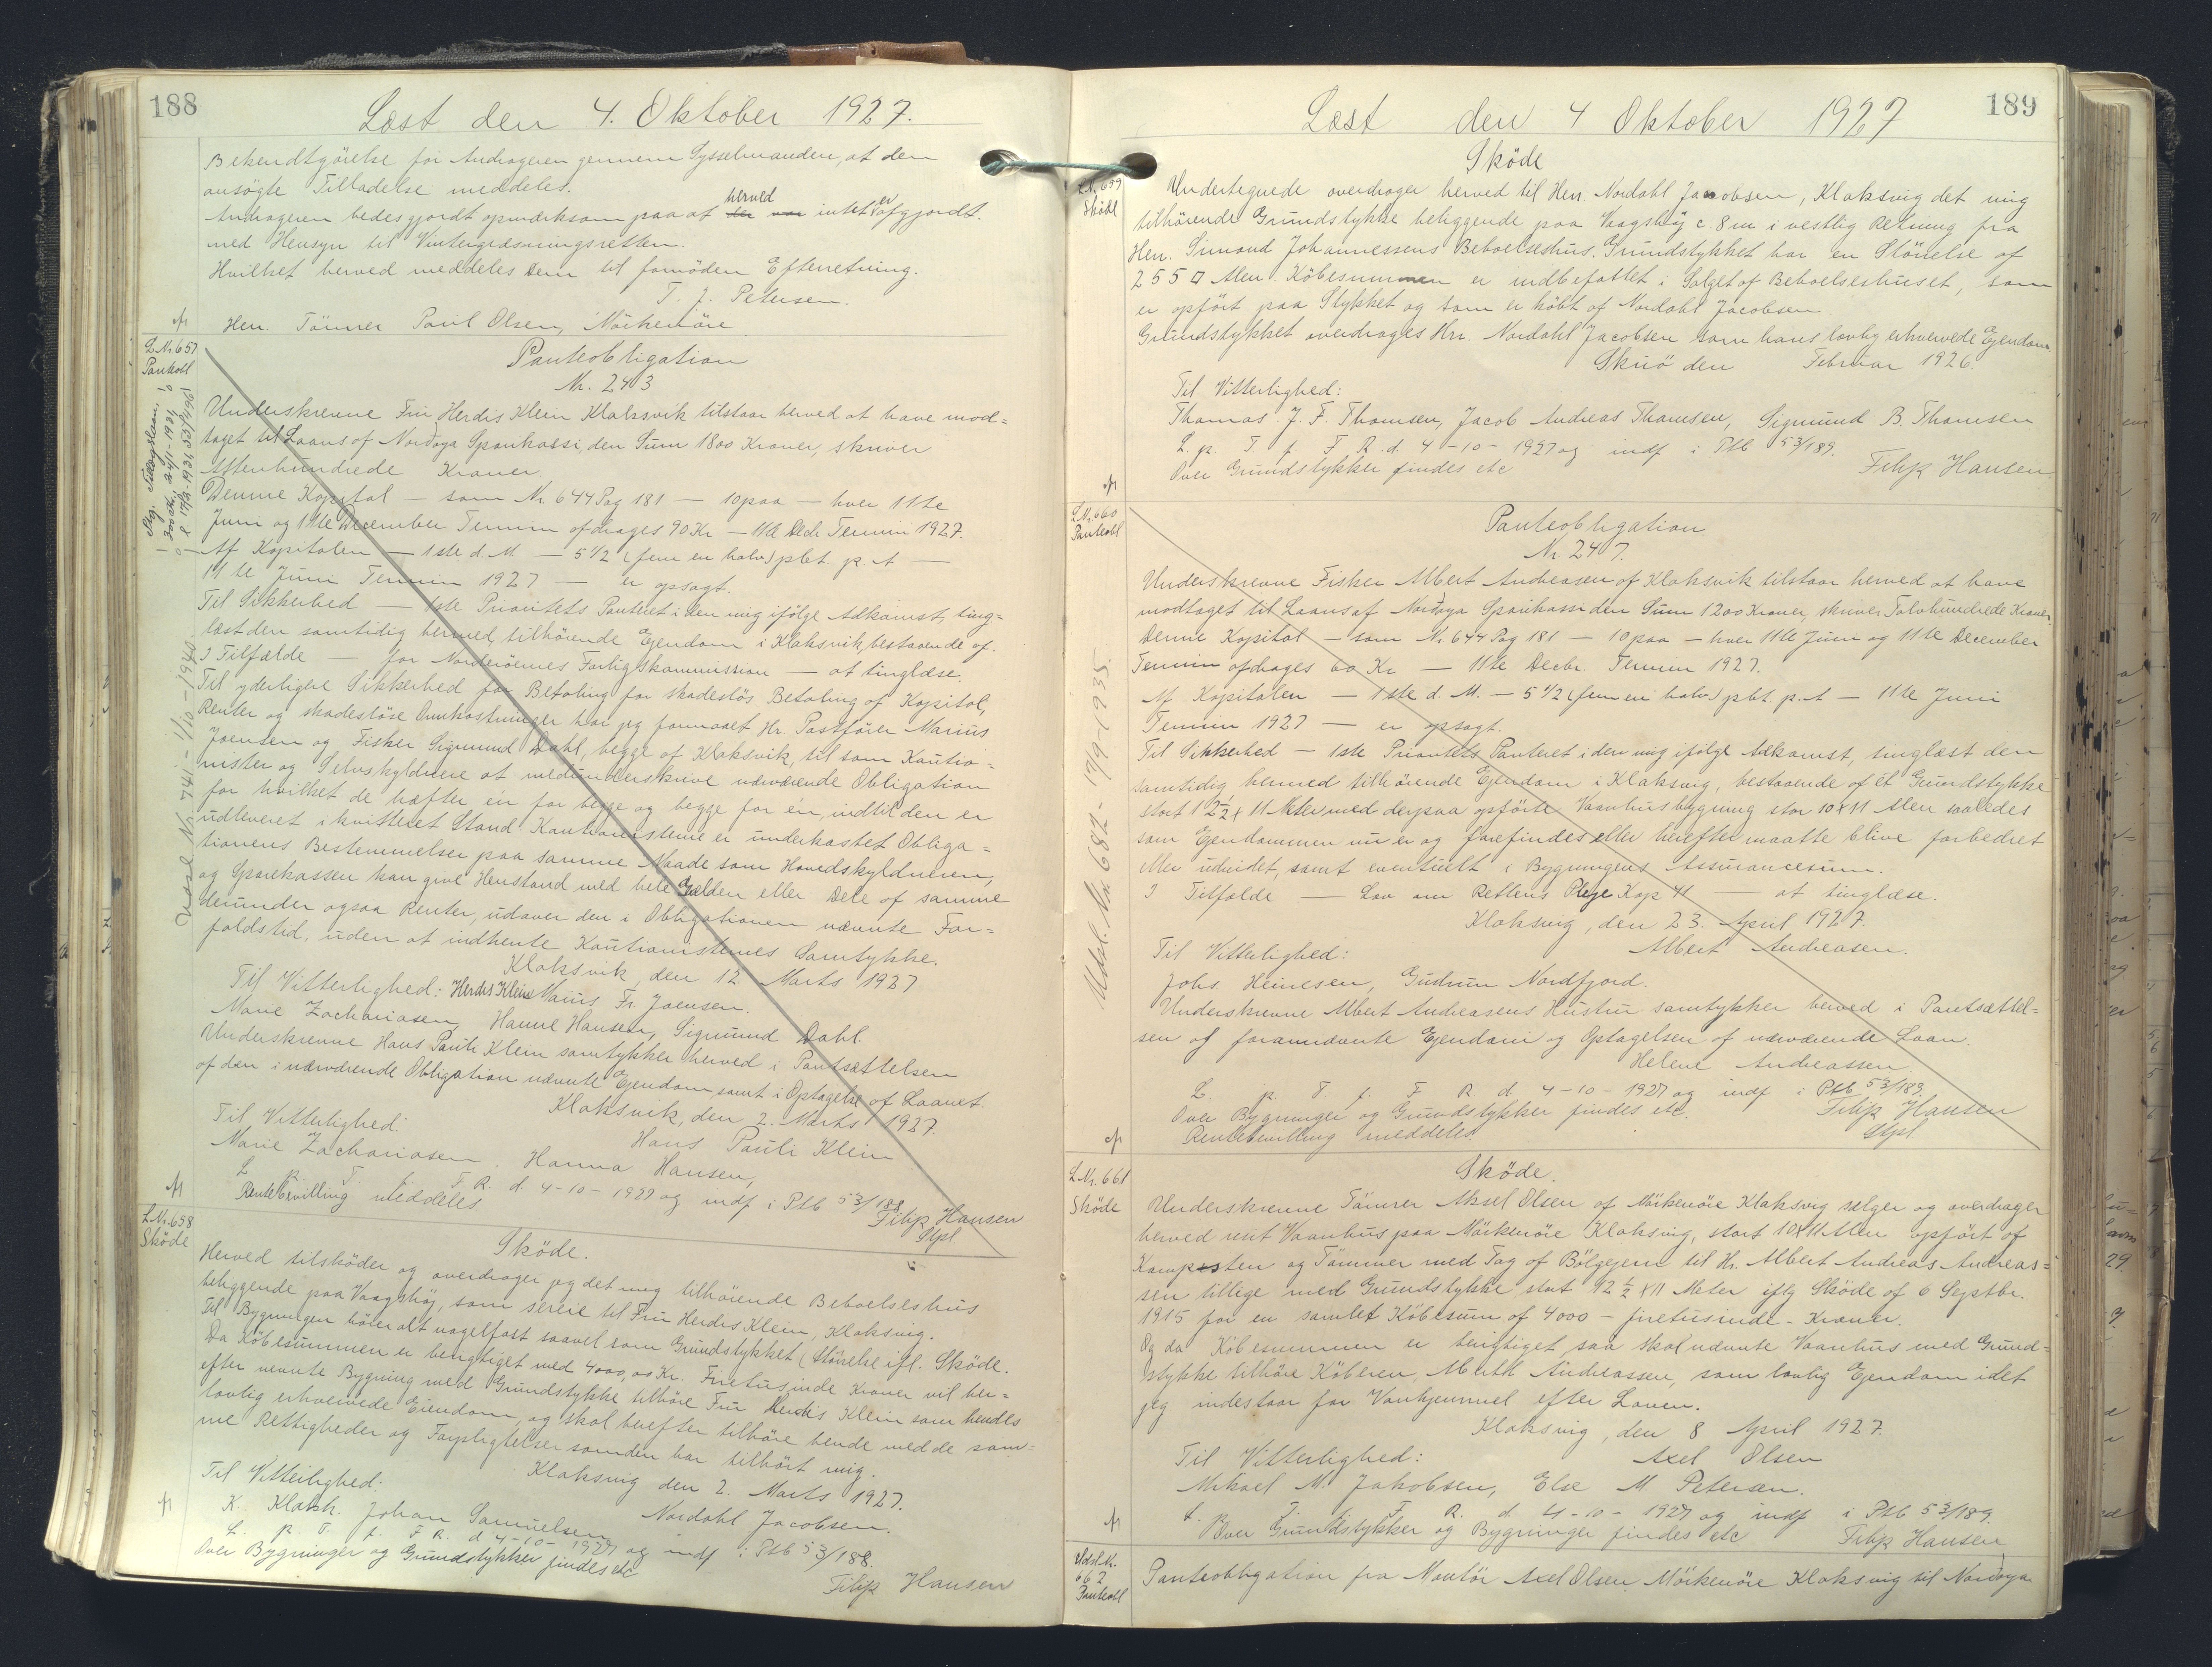 188
Læst den 4. Oktober 1927.
Bekendtgörelse for Andrageren gennem Sysselmanden, at den
ansögte Tilladelse meddeles.
Andrageren bedes gjordt opmærksom paa at herved intet er afgjordt
med Hensyn til Vintergræsningsretten.
Hvilket herved meddeles Dem til fornöden Efterretning.
T. J. Petersen.
Herr. Tömrer Poul Olsen, Mörkenöre
L.Nr. 657
Pantobl
Panteobligation
Nr. 243
Underskrevne Fru Herdis Klein Klaksvik tilstaar herved at have mod=
taget til Laans af Nordoya Sparikassi, den Sum 1800 Kroner, skriver
Attenhundrede Kroner.
Denne Kapital — som Nr 644 Pag 181 — 10 paa — hver 11te
Juni og 11te December Termin afdrages 90 Kr — 11te Decb. Termin 1927.
Af Kapitalen — 1ste d. M. — 5 1/2 (fem en halv) pCt. p. A —
11te Juni Termin 1927 — er opsagt.
Til Sikkerhed — 1ste Prioritets Panteret i den mig ifölge Adkomst, ting=
læst den samtidig hermed, tilhörende Ejendom i Klaksvik, bestaaende af.
I Tilfælde — for Norderöernes Forligskommission — at tinglæse.
Til yderligere Sikkerhed for Betaling for skadeslös Betaling af Kapital,
Renter og skadeslöse Omkostninger har jeg formaaet Hr. Postförer Marius
Joensen og Fisker Sigmund Dahl, begge af Klaksvik, til som Kautio=
nister og Selvskyldnere at medunderskrive nærværende Obligation
for hvilket de hæfter én for begge og begge for én, indtil den er
udleveret i kvitteret Stand. Kautionisterne er underkastet Obliga=
tionens Bestemmelser paa samme Maade som Hovedskyldneren,
og Sparekassen kan give Henstand med hele Gælden eller Dele af samme
derunder ogsaa Renter, udover den i Obligationen nævnte For=
faldstid, uden at indhente Kautionisternes Samtykke.
Klaksvik, den 12 Marts 1927
Til Vitterlighed: Herdis Klein Marius Fr. Joensen.
Marie Zachariasen, Hanne Hansen, Sigmund Dahl.
Underskrevne Hans Pauli Klein samtykker herved i Pantsættelsen
af den i nærværende Obligation nævnte Ejendom, samt i Optagelse af Laanet.
Klaksvik, den 2. Marts 1927.
Til Vitterlighed:
Hans Pauli Klein
Marie Zachariasen. Hanna Hansen,
L. p. T. f. F. R. d. 4-10-1927 og indf i Ptb 53/188
Rentebevilling meddeles
Filip Hansen
Stpl
Udsl. Nr. 741 - 1/10-1940.
L.Nr. 658
Sköde
Sköde.
Herved tilsköder og overdrager jeg det mig tilhörende Beboelseshus
beliggende paa Vaagshöj, som sereie til Fru Herdis Klein, Klaksvig.
Til Bygningen hörer alt nagelfast saavel som Grundstykket (Störrelse ifl. Sköde.
Da Köbesummen er berigtiget med 4000,00 Kr. Firetusinde Kroner vil her=
efter nævnte Bygning med Grundstykke tilhöre Fru Herdis Klein som hendes
lovlig erhvervede Eiendom, og skal herefter tilhöre hende med de sam=
me Rettigheder og Forpligtelser som den har tilhört mig.
Klaksvig den 2. Marts 1927.
Til Vitterlighed:
Nordahl Jacobsen.
K. Klaksh. Johan Samuelsen
L. p. T. f. F. R. d 4-10-1927 og indf i Ptb 53/188.
Over Bygninger og Grundstykker findes etc
Filip Hansen
189
Læst den 4 Oktober 1927
L.N. 659
Sköde
Sköde
Undertegnede overdrager herved til Herr. Nordahl Jacobsen, Klaksvig det mig
tilhörende Grundstykke beliggende paa Vaagshöj c. 8 m i vestlig Retning fra
Herr. Simond Johannessens Beboelseshus. Grundstykket har en Störrelse af
255 □ Alen. Köbesummen er indbefattet i Salget af Beboelseshuset, som
er opfört paa Stykket og som er köbt af Nordahl Jacobsen
Grundstykket overdrages Hrr. Nordahl Jacobsen som hans lovlig erhvervede Ejendom.
Skuö den Februar 1926.
Til Vitterlighed:
Thomas J. F. Thomsen, Jacob Andreas Thomsen, Sigmund B. Thomsen
L. p. T. f. F. R. d. 4-10-1927 og indf i Ptb 53/189.
Over Grundstykker findes etc
Filip Hansen
L.Nr. 660
Panteobl
Panteobligation
Nr. 247.
Underskrevne Fisker Albert Andreasen af Klaksvik tilstaar herved at have
modtaget til Laans af Nordoya Sparikassi den Sum 1200 Kroner, skriver Tolvhundrede Kroner.
Denne Kapital — som Nr. 644 Pag 181 — 10 paa — hver 11te Juni og 11te December
Termin afdrages 60 Kr — 11te Decbr. Termin 1927.
Af Kapitalen — 1ste d. M. — 5 1/2 (fem en halv) pCt p. A — 11te Juni
Termin 1927 — er opsagt.
Til Sikkerhed — 1ste Prioritets Panteret i den mig ifölge Adkomst, tinglæst den
samtidig hermed tilhörende Ejendom i Klaksvig, bestaaende af ét Grundstykke
stort 12 1/2 x 11 Meter med derpaa opförte Vaanhusbygning stor 10 x 11 Alen saaledes
som Ejendommen nu er og forefindes eller herefter maatte blive forbedret
eller udvidet, samt eventuelt i Bygningens Assurancesum.
I Tilfælde — Lov om Rettens Pleje Kap 41 — at tinglæse.
Klaksvig, den 23. April 1927.
Til Vitterlighed:
Albert Andreasen.
Johs. Heinesen, Gudrun Nordfjord.
Underskrevne Albert Andreasens Hustru samtykker herved i Pantsættel=
sen af forannævnte Ejendom og Optagelsen af nærværende Laan.
Helene Andreassen
L. p. T. f. F R d. 4-10-1927 og indf i Ptb 53/189.
Over Bygninger og Grundstykker findes etc.
Filip Hansen
Rentebevilling meddeles
Stpl
Udsl. Nr. 681 - 17/9-1935.
L.Nr. 661
Sköde
Sköde.
Underskrevne Tömrer Aksel Olsen af Mörkenöre Klaksvig sælger og overdrager
herved mit Vaanhus paa Mörkenöre Klaksvig, stort 10 x 11 Alen opfört af
Kampesten og Tömmer med Tag af Bölgejern til Hr. Albert Andreas Andreas=
sen tillige med Grundstykke stort 12 1/2 x 11 Meter iflg Sköde af 6 Septbr.
1915 for en samlet Köbesum af 4000 - firetusinde - Kroner.
Og da Köbesummen er berigtiget, saa skal nævnte Vaanhus med Grund=
stykke tilhöre Köberen, Albert Andreassen, som lovlig Ejendom idet
jeg indestaar for Vanhjemmel efter Loven.
Klaksvig, den 8 April 1927.
Til Vitterlighed:
Axel Olsen
Mikael M. Jakobsen, Else M Petersen.
L. p. T. f. F. R. d. 4-10-1927 og indf i Ptb 53/189.
Over Grundstykker og Bygninger findes etc
Filip Hansen
Udsl. Nr.
662
Panteobl
Panteobligation fra Montör Axel Olsen Mörkenöre Klaksvig til Nordoya